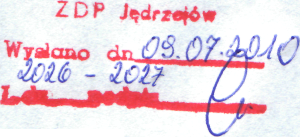 ZDP Jędrzejów
Wysłano dn 09.07.2010
2026 - 2027
L.dz. podpis